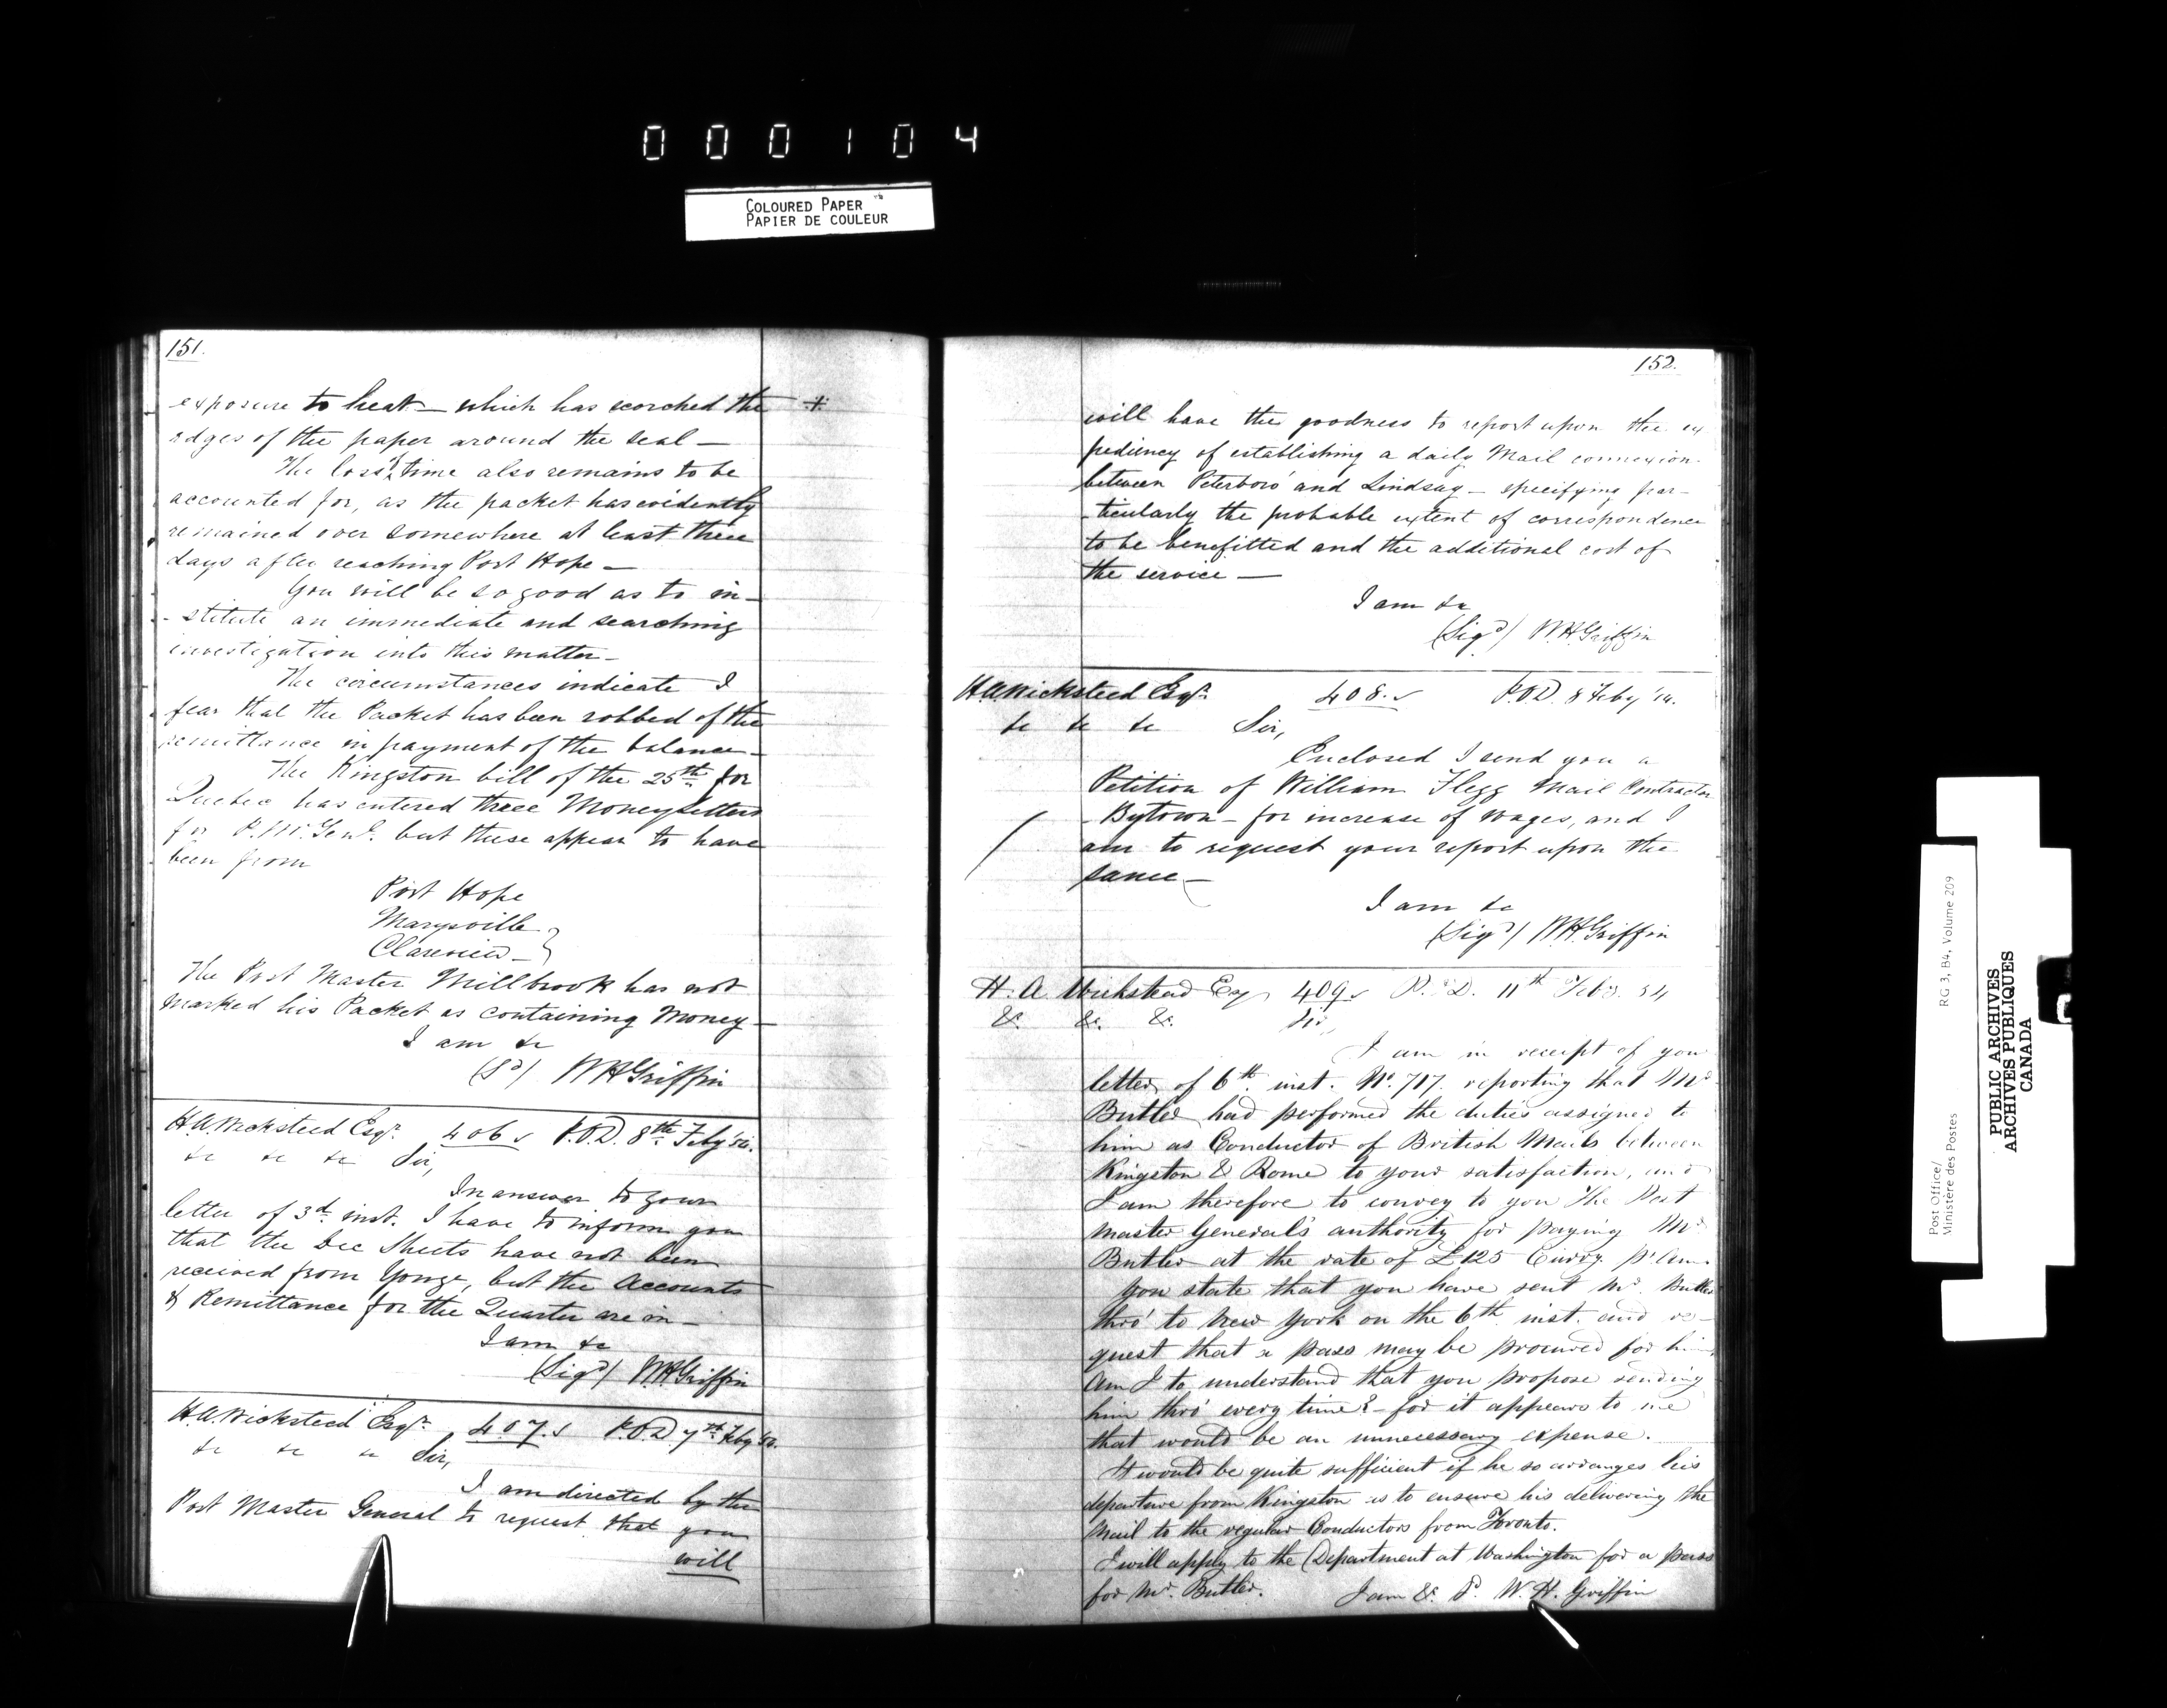 000104
COLOURED PAPER
PAPIER DE COULEUR
151.
exposure to heat — which has scorched the
edges of the paper around the seal —
The loss of time also remains to be
accounted for, as the packet has evidently
remained over somewhere at least three
days after reaching Port Hope —
You will be so good as to in-
-stitute an immediate and searching
investigation into this matter —
The circumstances indicate I
fear that the Packet has been robbed of the
remittance in payment of the balance —
The Kingston bill of the 25th for
Quebec has entered three Money Letters
for P.M. Genl. but these appear to have
been from
Port Hope
Marysville
Clarence — }
The Post Master Millbrook has not
marked his Packet as containing Money —
I am &c
(Sd) W H Griffin
H.A. Wicksteed Esqr. 406 P.O.D. 8th Feby '54.
&c &c &c Sir,
In answer to your
letter of 3d inst. I have to inform you
that the Dec Sheets have not been
received from Yonge, but the Accounts
& Remittance for the Quarter are in —
I am &c
(Sigd) W H Griffin
H.A. Wicksteed Esqr. 407. P.O.D. 7th Feby '54.
&c &c &c Sir,
I am directed by the
Post Master General to request that you
will
152.
will have the goodness to report upon the ex
pediency of establishing a daily Mail connexion
between Peterboro' and Lindsay — specifying par-
-ticularly the probable extent of correspondence
to be benefitted and the additional cost of
the service —
I am &c
(Sigd) W H Griffin
H.A. Wicksteed Esqr. 408. P.O.D. 8 Feby '54.
&c &c &c Sir,
Enclosed I send you a
Petition of William Flegg Mail Contractor
- Bytown - for increase of wages, and I
am to request your report upon the
same —
I am &c
(Sigd) W H Griffin
H. A. Wickstead Esq 409 P.O.D. 11th Feby. 54
&c. &c. &c. Sir,
I am in receipt of your
letter of 6th inst. No. 717. reporting that Mr
Butler had performed the duties assigned to
him as Conductor of British Mails between
Kingston & Rome to your satisfaction, and
I am therefore to convey to you the Post
Master General's authority for paying Mr
Butler at the rate of £125 Curry. pr Ann.
You state that you have sent Mr. Butler
thro' to New York on the 6th inst. and re-
quest that a pass may be procured for him.
Am I to understand that you propose sending
him thro' every time? - for it appears to me
that would be an unnecessary expense.
It would be quite sufficient if he so arranges his
departure from Kingston as to ensure his delivering the
Mail to the regular Conductors from Toronto.
I will apply to the Department at Washington for a pass
for Mr. Butler. I am &c. Sd. W. H. Griffin
Post Office/
Ministère des Postes
RG 3, B4, Volume 209
PUBLIC ARCHIVES
ARCHIVES PUBLIQUES
CANADA